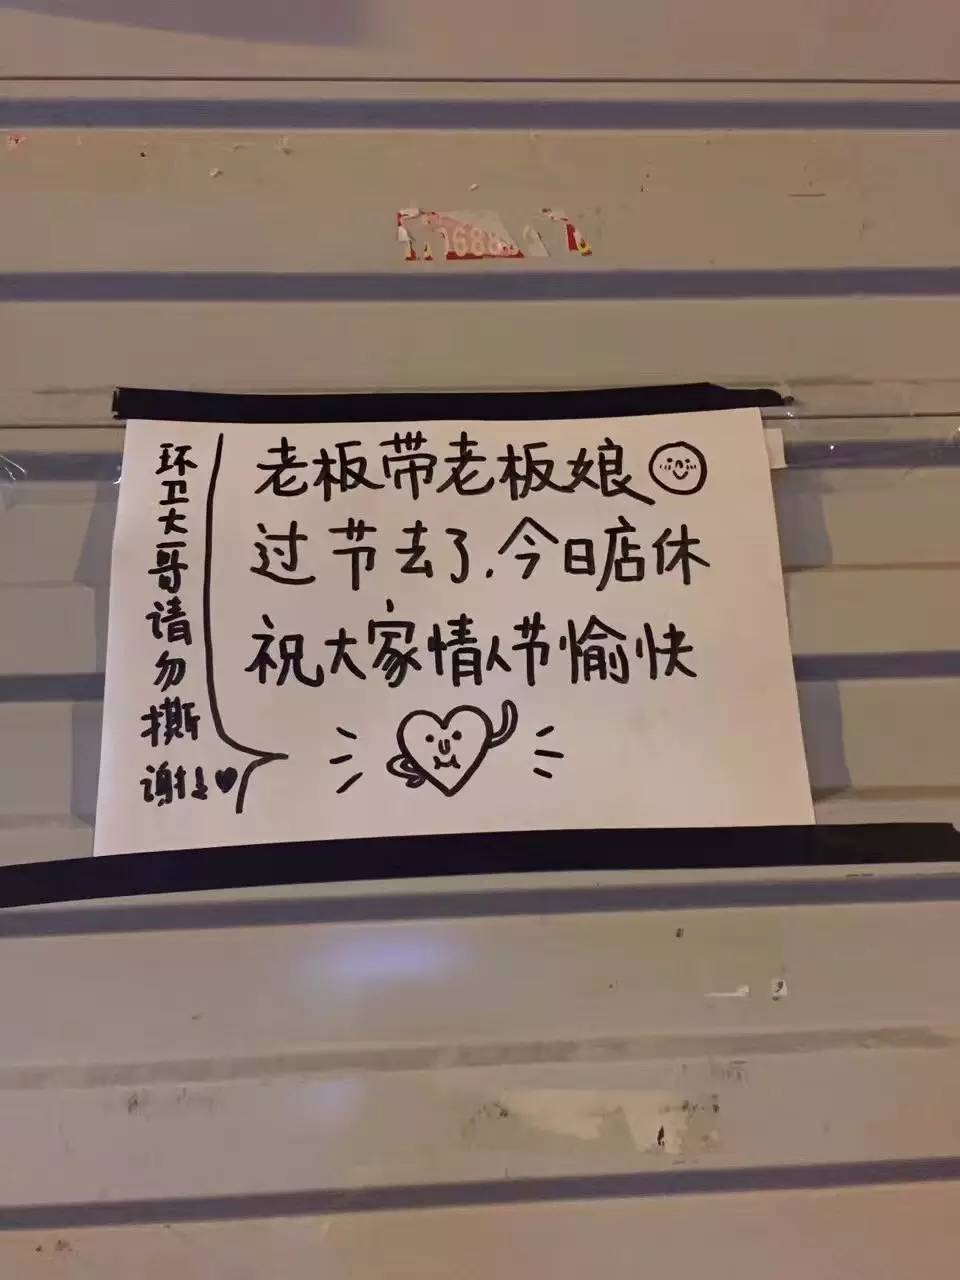 老板带老板娘
过节去了.今日店休
祝大家情人节愉快
环卫大哥请勿撕
谢谢